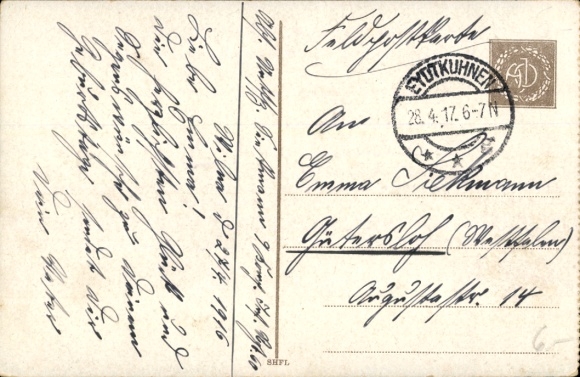 Feldpostkarte
EYDTKUHNEN
28.4.17. 6-7N
An
Emma Siekmann
Gütersloh (Westfalen)
Augustastr. 14
Wilna d 27/4 1916
Liebe Emma!
Die herzlichsten Glück und
Segenswünsche zu Deinem
Geburtstage sendet Dir
Dein
SHFL
6.-